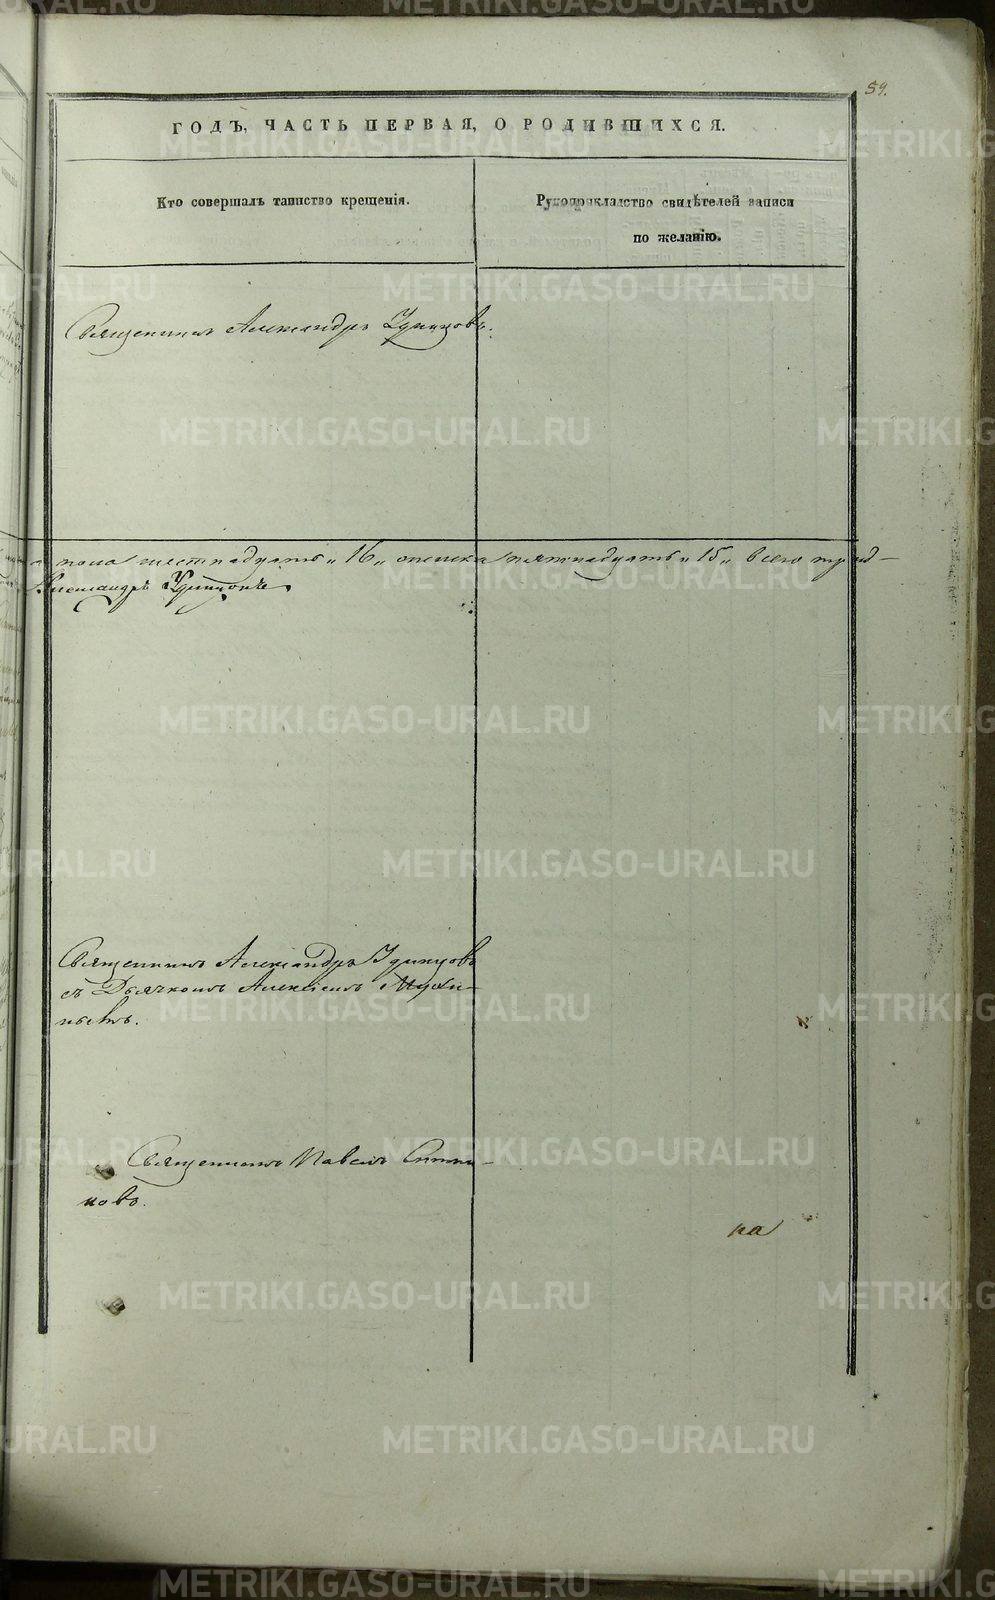 59.
ГОДЪ, ЧАСТЬ ПЕРВАЯ, О РОДИВШИХСЯ.
Кто совершалъ таинство крещенія.
Рукоприкладство свидѣтелей записи
по желанію.
Священникъ Александръ Удинцовъ.
пола шестнадцать „16„ женска пятнадцать „15„ всего трид-
Александръ Удинцовъ
Священникъ Александръ Удинцовъ
съ Дьячкомъ Алексіемъ
Священникъ Павелъ
новъ.
на
METRIKI.GASO-URAL.RU